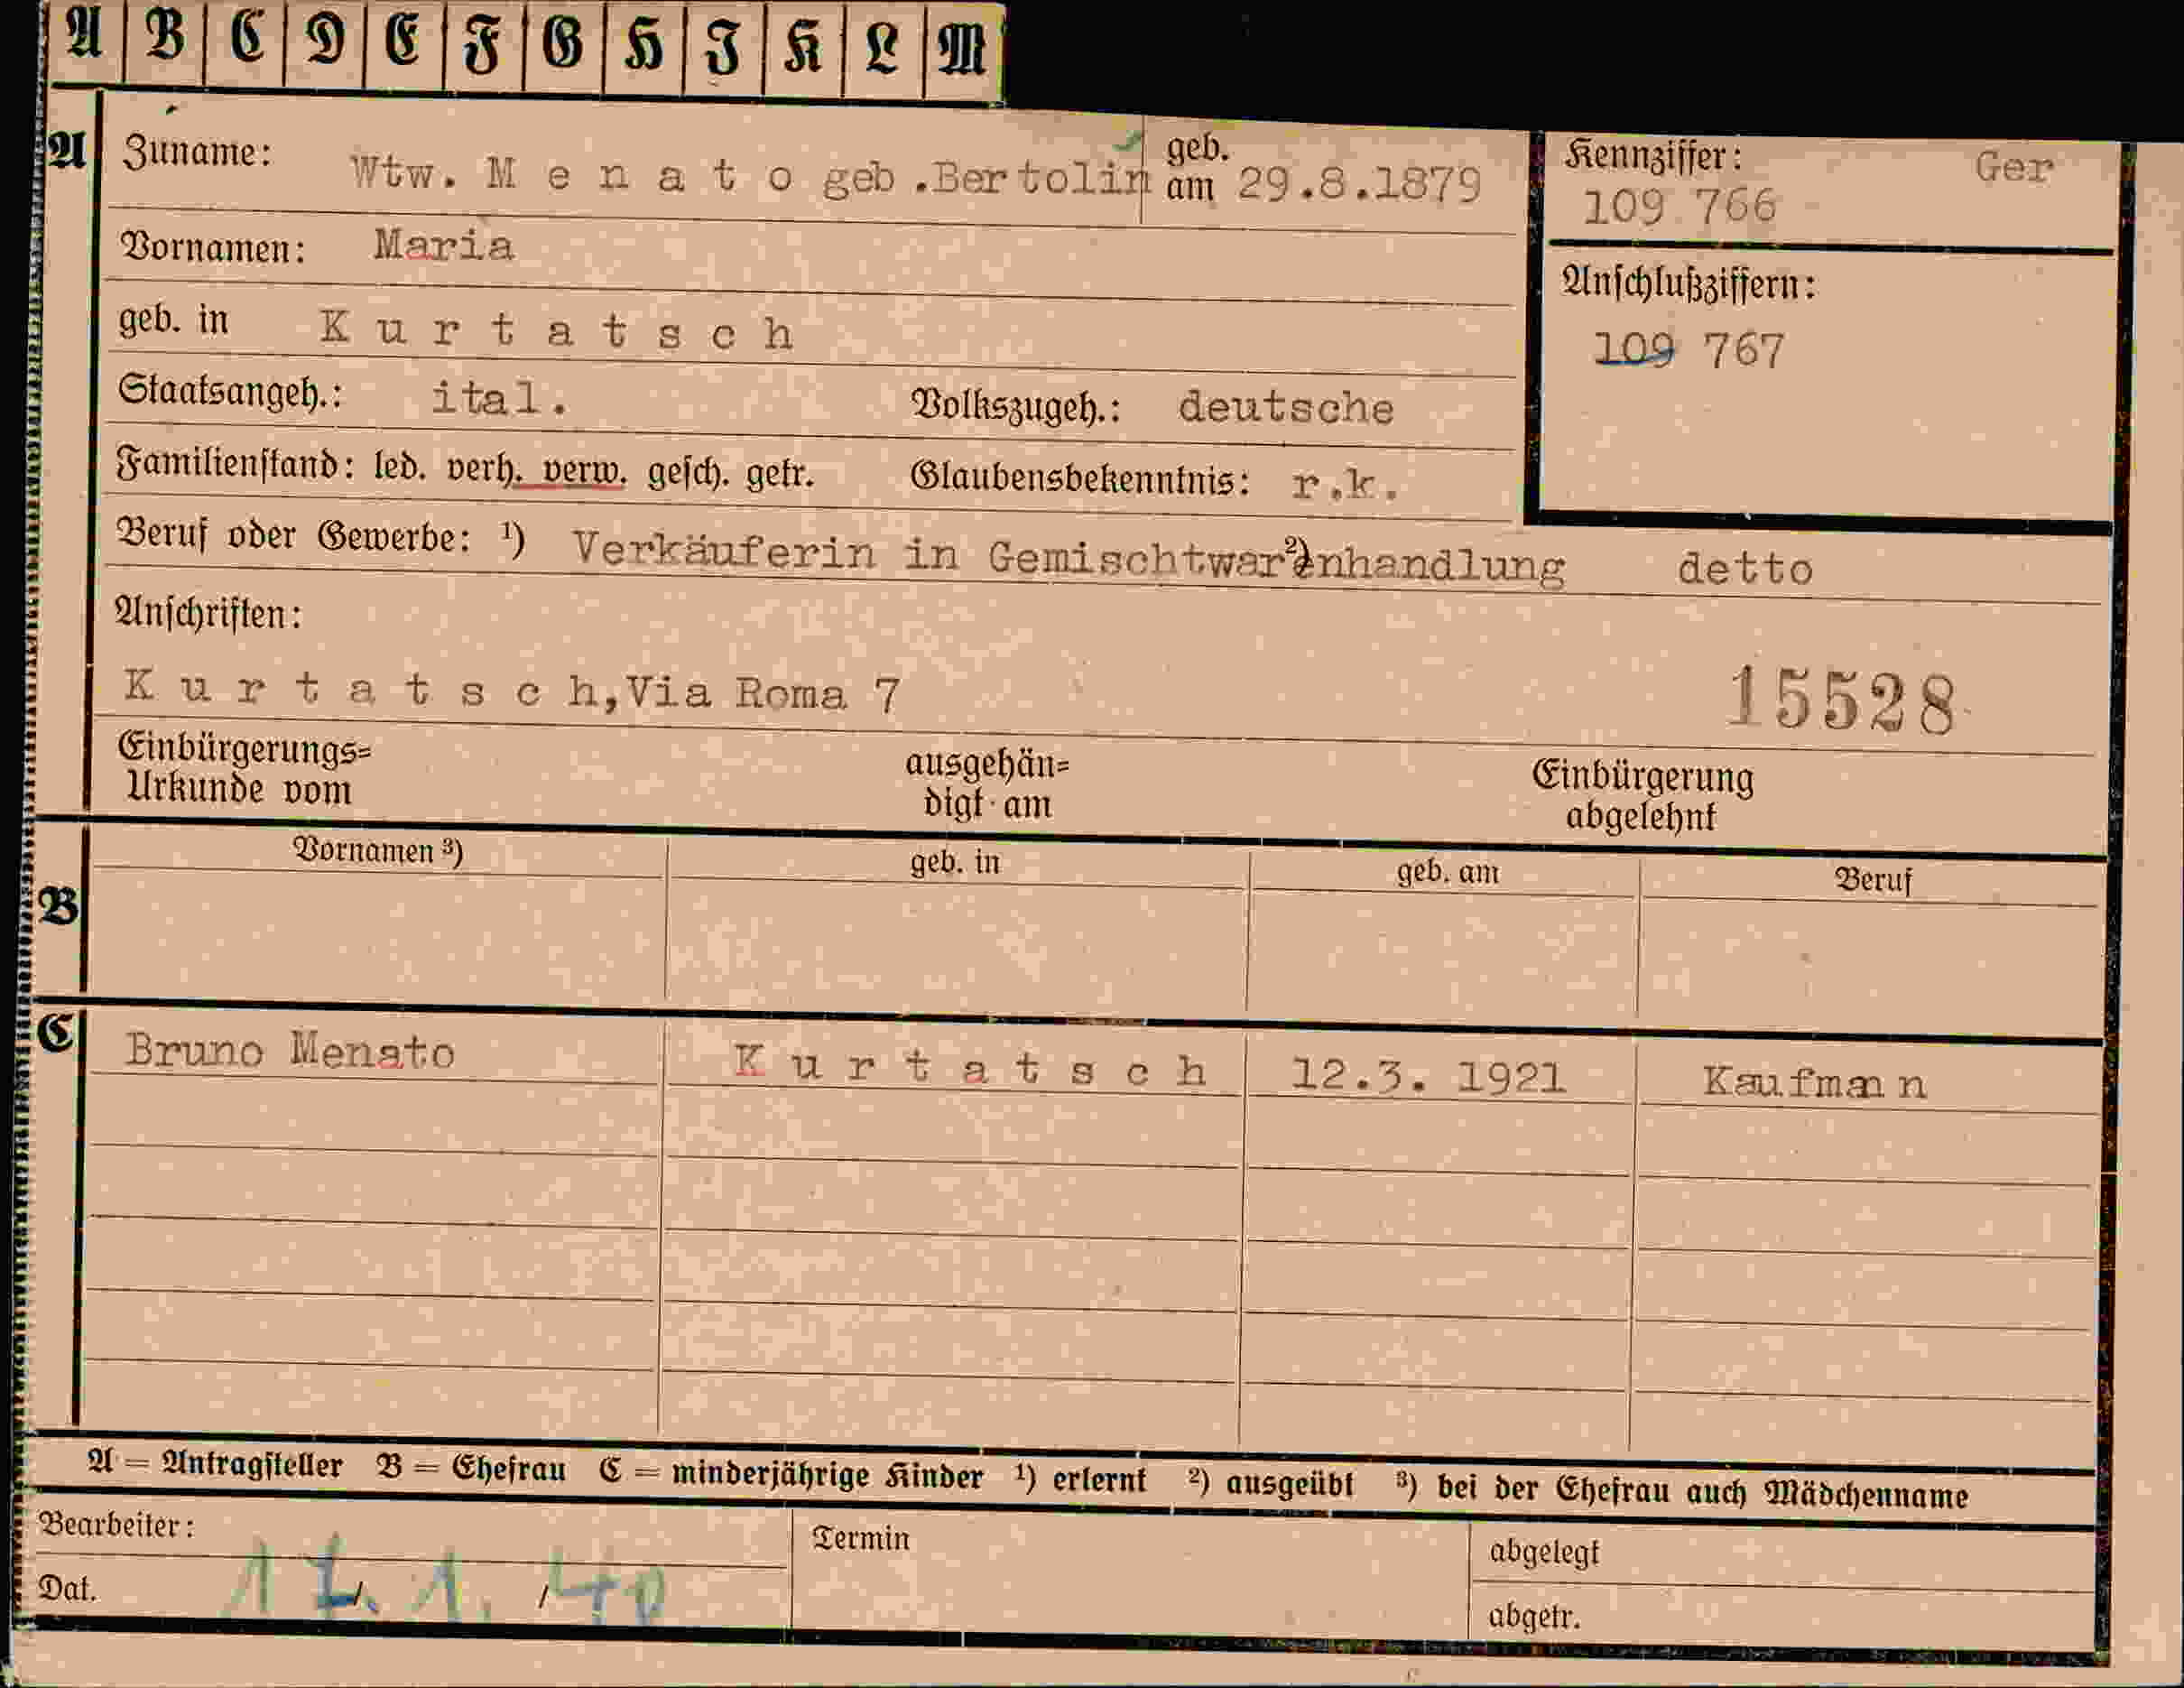 A B C D E F G H I K L M
A Zuname: Wtw. M e n a t o geb.Bertolin geb. am 29.8.1879
Kennziffer: Ger
109 766
Vornamen: Maria
Anschlußziffern:
109 767
geb. in K u r t a t s c h
Staatsangeh.: ital. Volkszugeh.: deutsche
Familienstand: led. verh. verw. gesch. getr. Glaubensbekenntnis: r.k.
Beruf oder Gewerbe: ¹) Verkäuferin in Gemischtwarenhandlung ²) detto
Anschriften:
K u r t a t s c h,Via Roma 7
15528
Einbürgerungs=
Urkunde vom
ausgehän=
digt am
Einbürgerung
abgelehnt
B Vornamen ³) geb. in geb. am Beruf
C Bruno Menato K u r t a t s c h 12.3. 1921 Kaufmann
A = Antragsteller B = Ehefrau C = minderjährige Kinder ¹) erlernt ²) ausgeübt ³) bei der Ehefrau auch Mädchenname
Bearbeiter:
Dat. 17. 1. 40
Termin
abgelegt
abgetr.